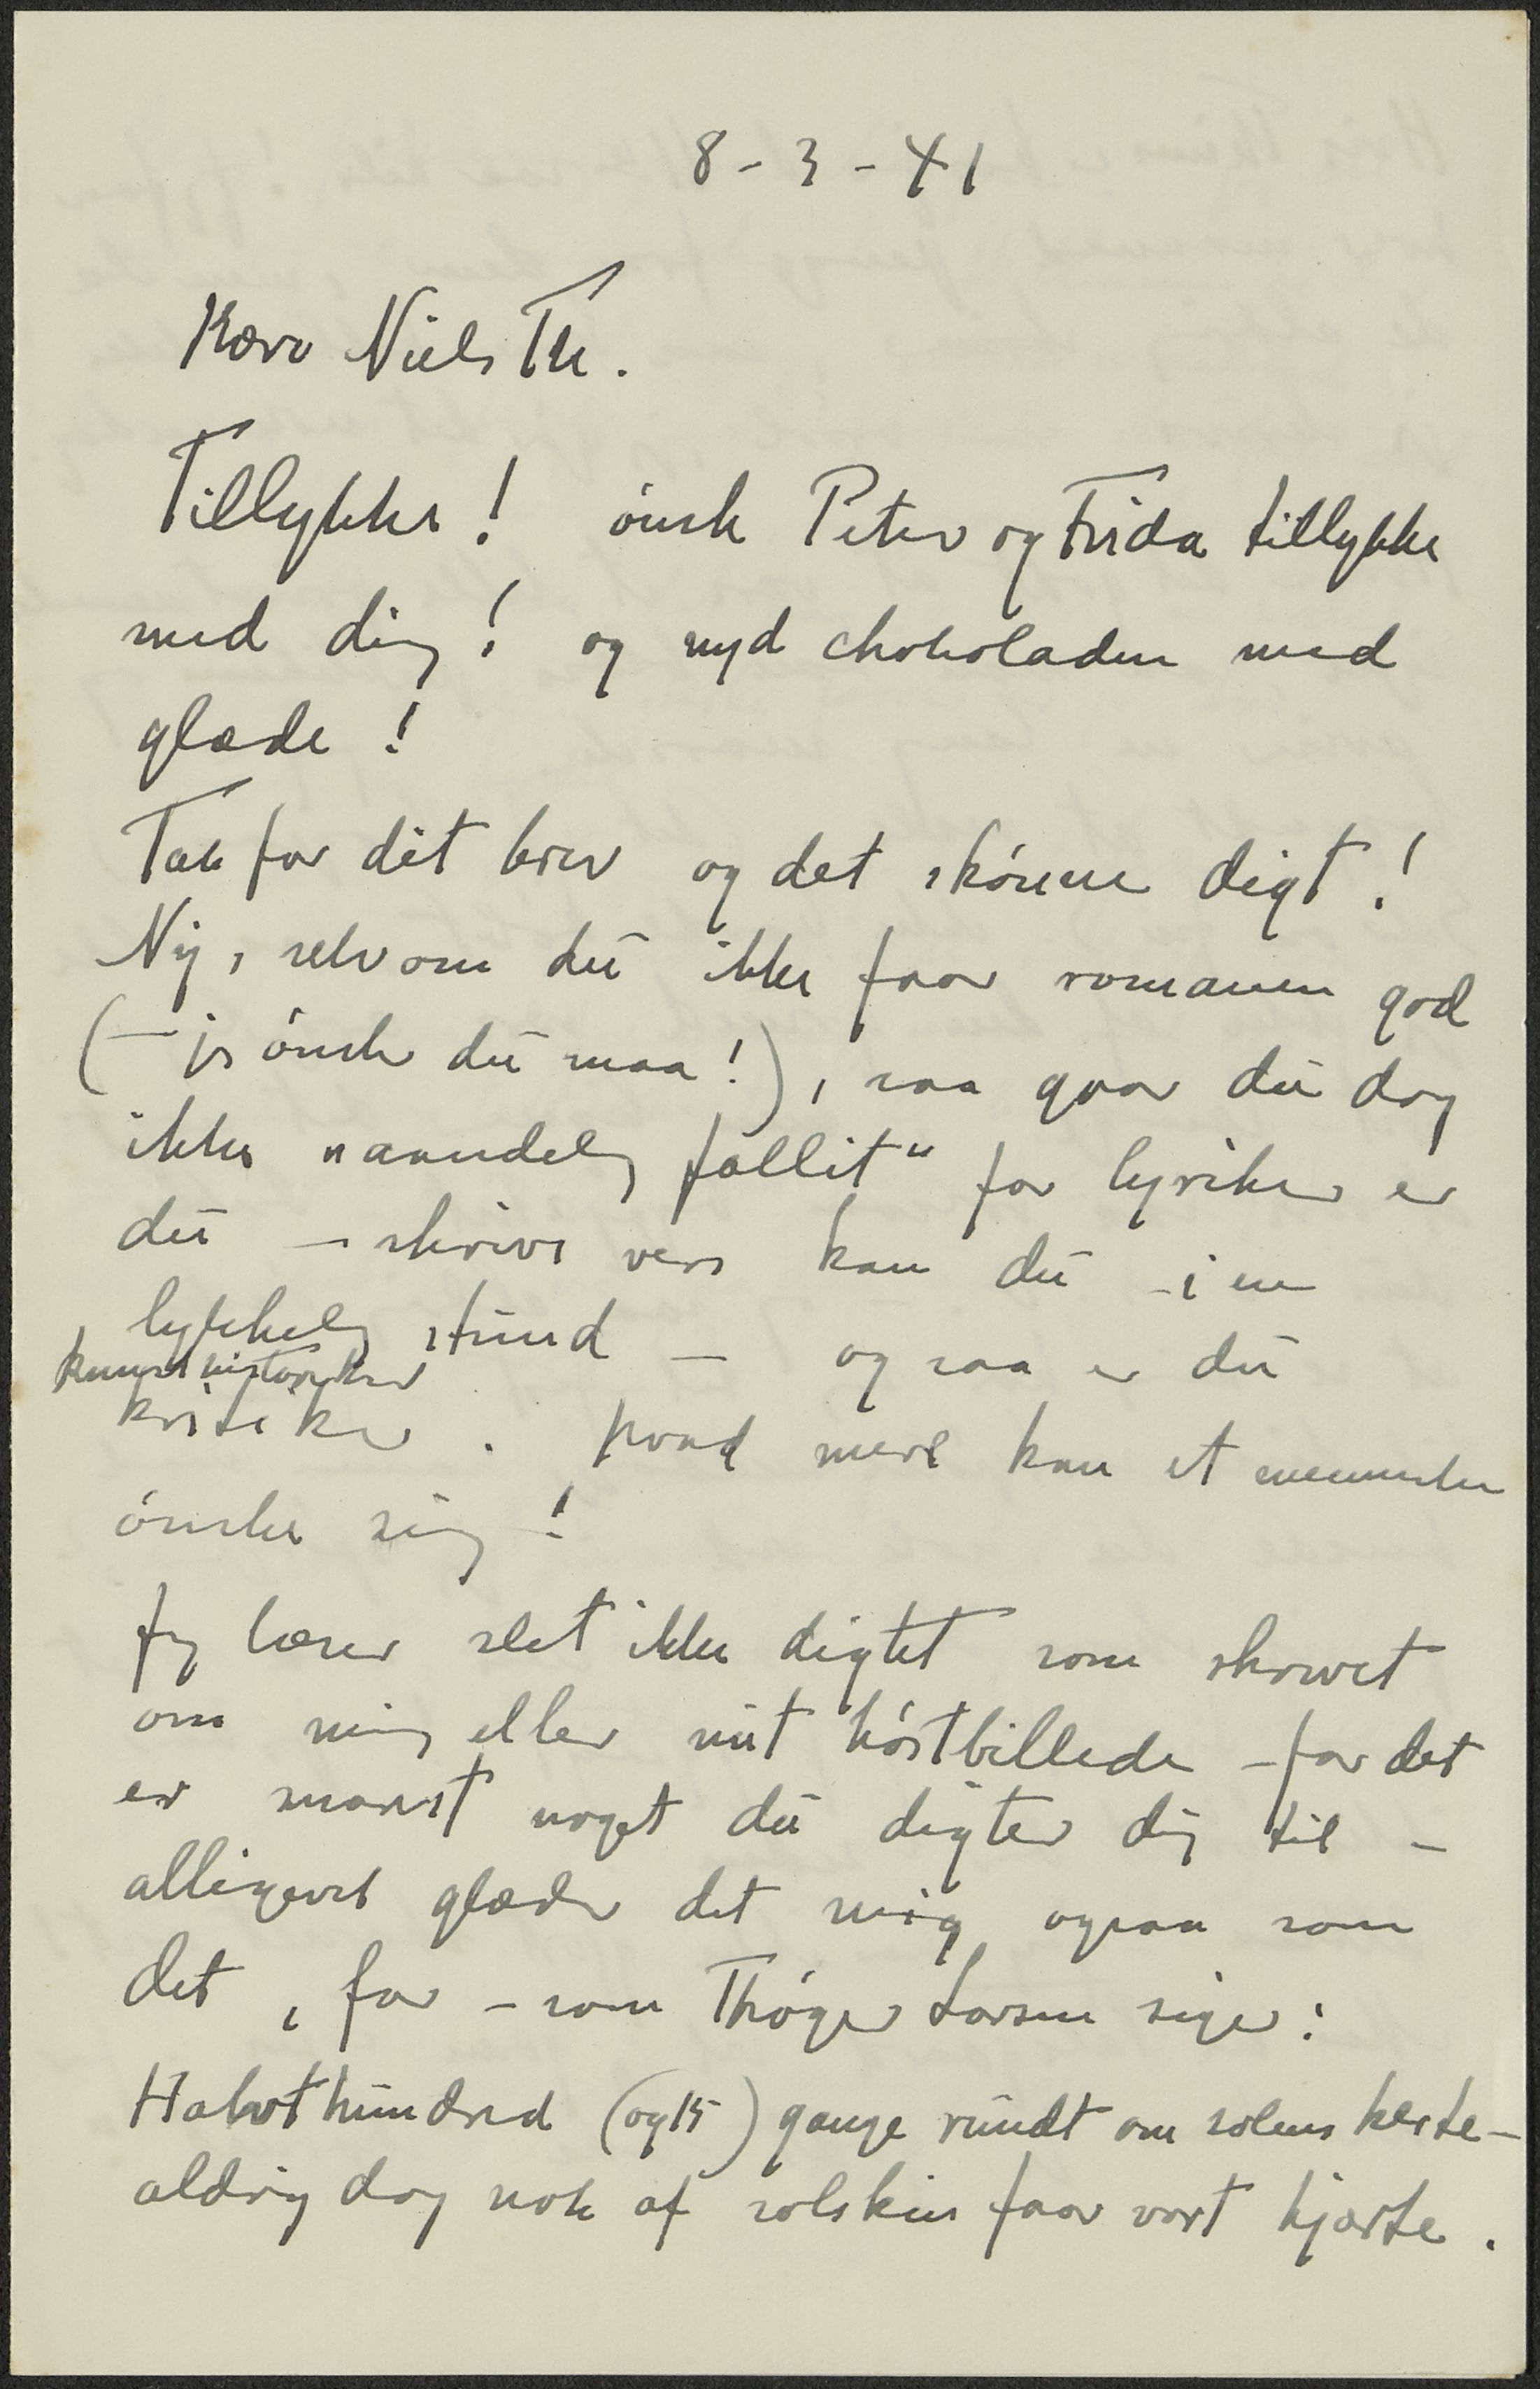 8 - 3 - 41
Kære Niels Th.
Tillykke! ønsk Peter og Frida tillykke
med dig! og nyd chokoladen med
glæde!
Tak for dit brev og det skønne digt!
Nej, selv om du ikke faar romanen god
(- jeg ønsker du maa!), saa gaar du dog
ikke "aandelig fallit" for lyriker er
du - skrive vers kan du - i en
lykkelig stund - og saa er du
kunsthistoriker
kritiker. hvad mere kan et menneske
ønske sig!
Jeg læser slet ikke digtet som skrevet
om mig eller mit høstbillede - for det
er snarest noget du digter dig til -
alligevel glæder det mig ogsaa som
det, for - som Thøger Larsen siger:
Halvthundred (og 15) gange rundt om solens kerte -
aldrig dog nok af solskin faar vort hjærte.